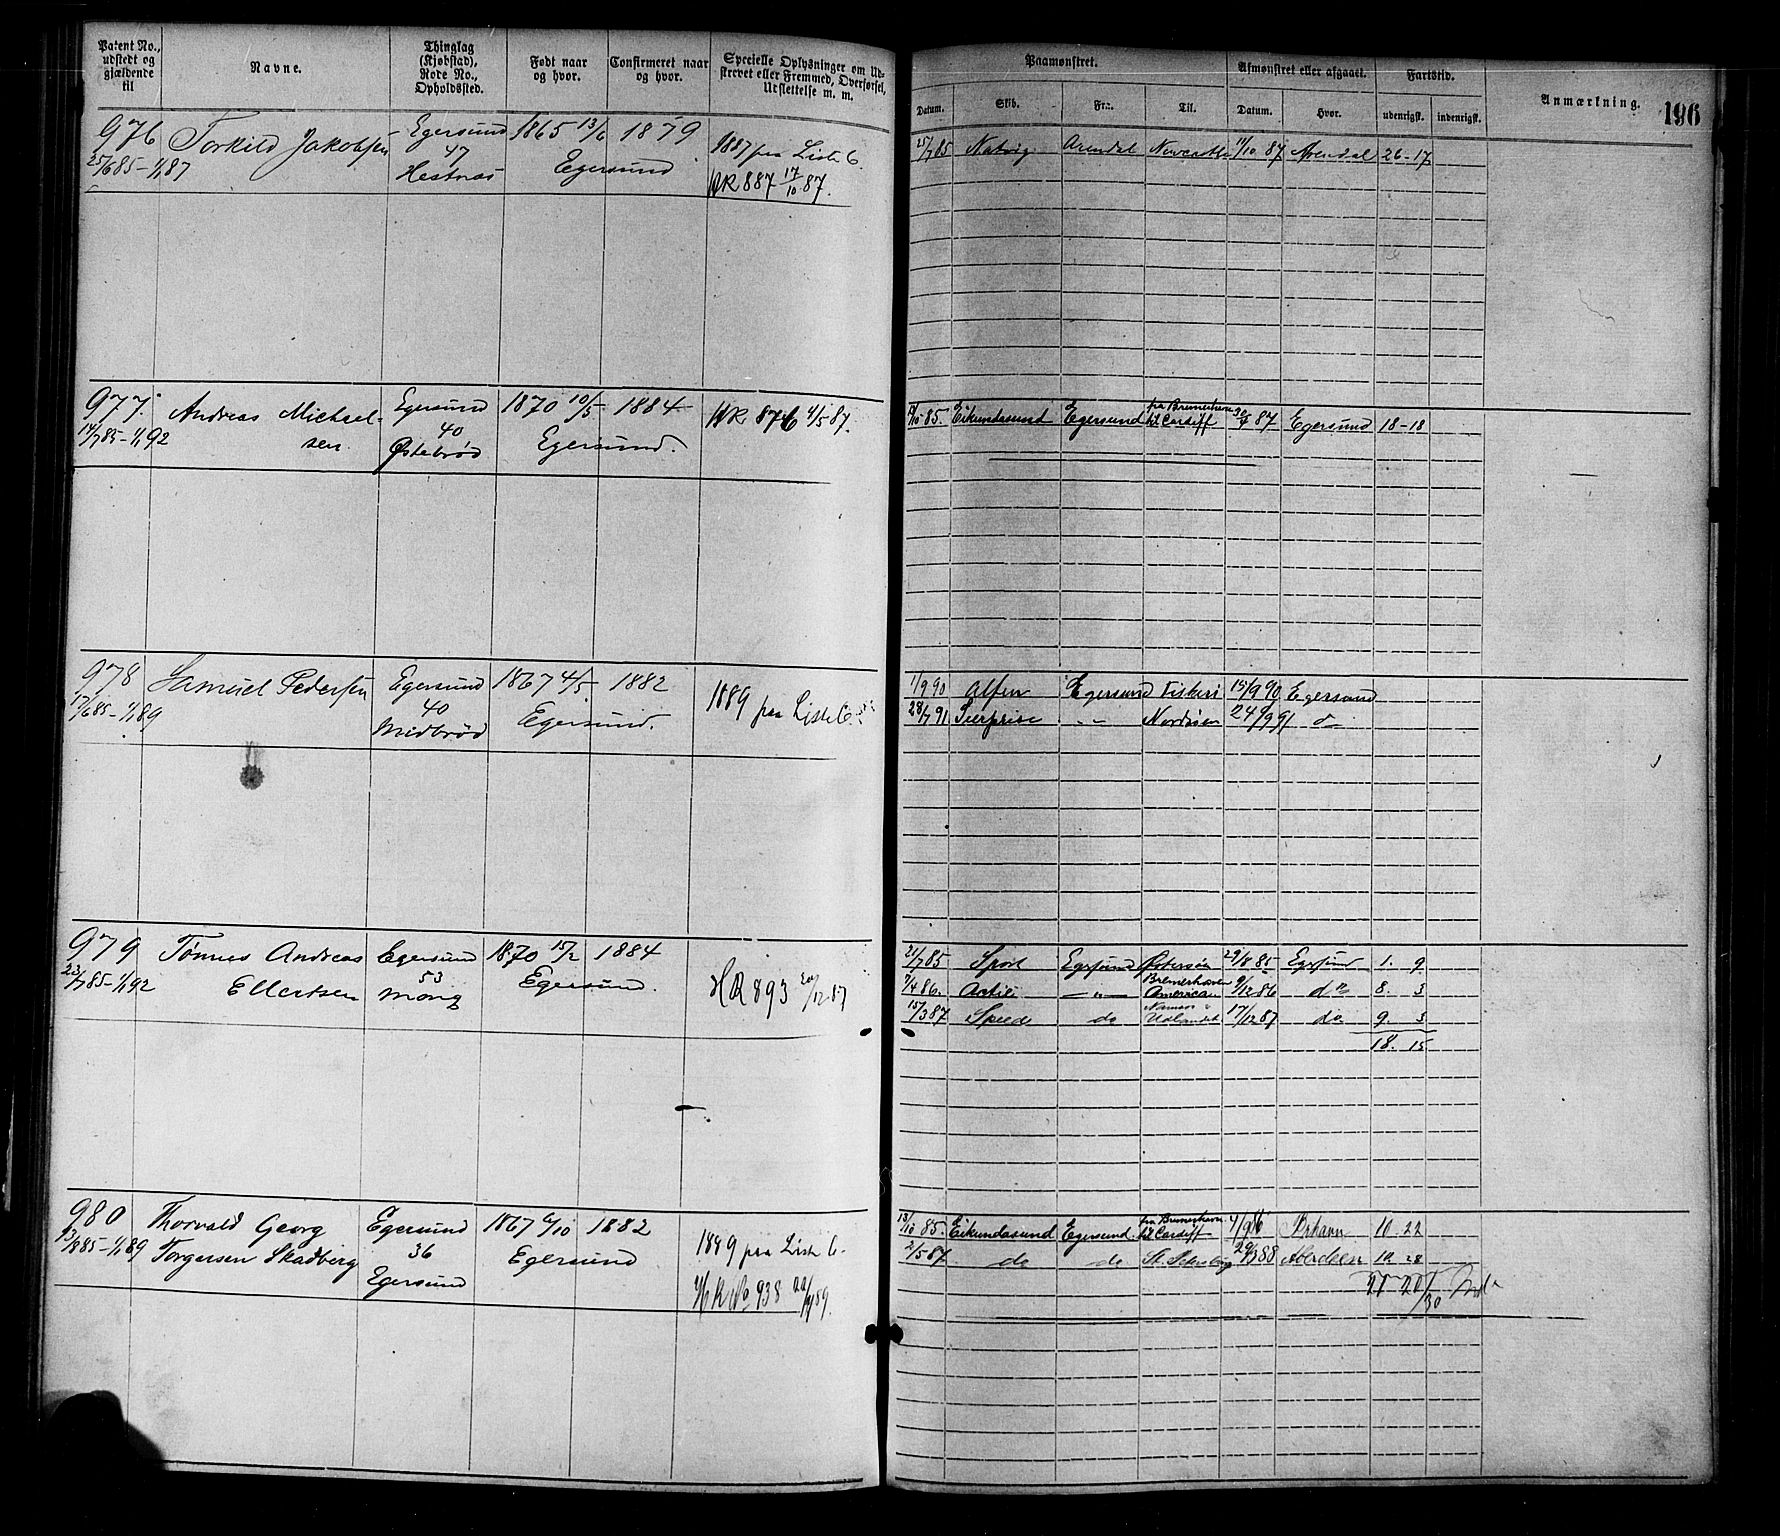 Patent No., udstedt og gjældende til
Navne.
Thinglag (Kjøbstad), Rode No., Opholdssted.
Født naar og hvor.
Confirmeret naar og hvor.
Specielle Oplysninger om Udskrevet eller Fremmed, Overførsel, Udslettelse m. m.
Paamønstret.
Datum.
Skib.
Fra.
Til.
Afmønstret eller afgaaet.
Datum.
Hvor.
Fartstid.
udenrigsk.
indenrigsk.
Anmærkning.
196
976 Torkild Jakobsen Egersund 1865 13/6 1879 1887 paa Liste C.
25/6 85 – 1/1 87 47 Egersund
Hestnes HR 887 17/10 87.
25/7 85 Natvig Arendal Newcastle 11/10 87 Arendal 26-17
977. Andreas Michael- Egersund 1870 10/5 1884 HR 876 4/5 87.
14/7 85 – 1/1 92 sen 40 Egersund.
Østebrød
85. Eikundasund Egersund fra Bremerhaven til Cardiff 87 Egersund 18-18
978 Samuel Pedersen Egersund 1867 4/5 1882 1889 paa Liste C
17/6 85 – 1/1 89 40 Egersund.
Midbrød
1/9 90 Alfen Egersund Fiskeri 15/9 90 Egersund
28/7 91 Surprise -„- Nordsøen 24/9 91 do
979 Tønnes Andreas Egersund 1870 15/2 1884 HR 893 20/12 87
23/7 85 – 1/1 92 Ellertsen 53 Egersund.
Mong
21/7 85 Sport Egersund Østersøen 29/8 85 Egersund 1. 9
7/4 86. -„- Bremerhaven American 9/12 86 do 8. 3
15/3 87 Speed do Udlandet 17/12 87 do 9. 3
18. 15
980 Thorvald Georg Egersund 1867 6/10 1882 1889 paa Liste C.
13/8 85 – 1/1 89 Torgersen Skadberg 36 Egersund
Egersund HR No 938 89.
13/10 85. Eikundasund Egersund fra Bremerhaven til Cardiff 4/9 86 10. 22
2/5 87 do do 88 Aberdeen 10 28